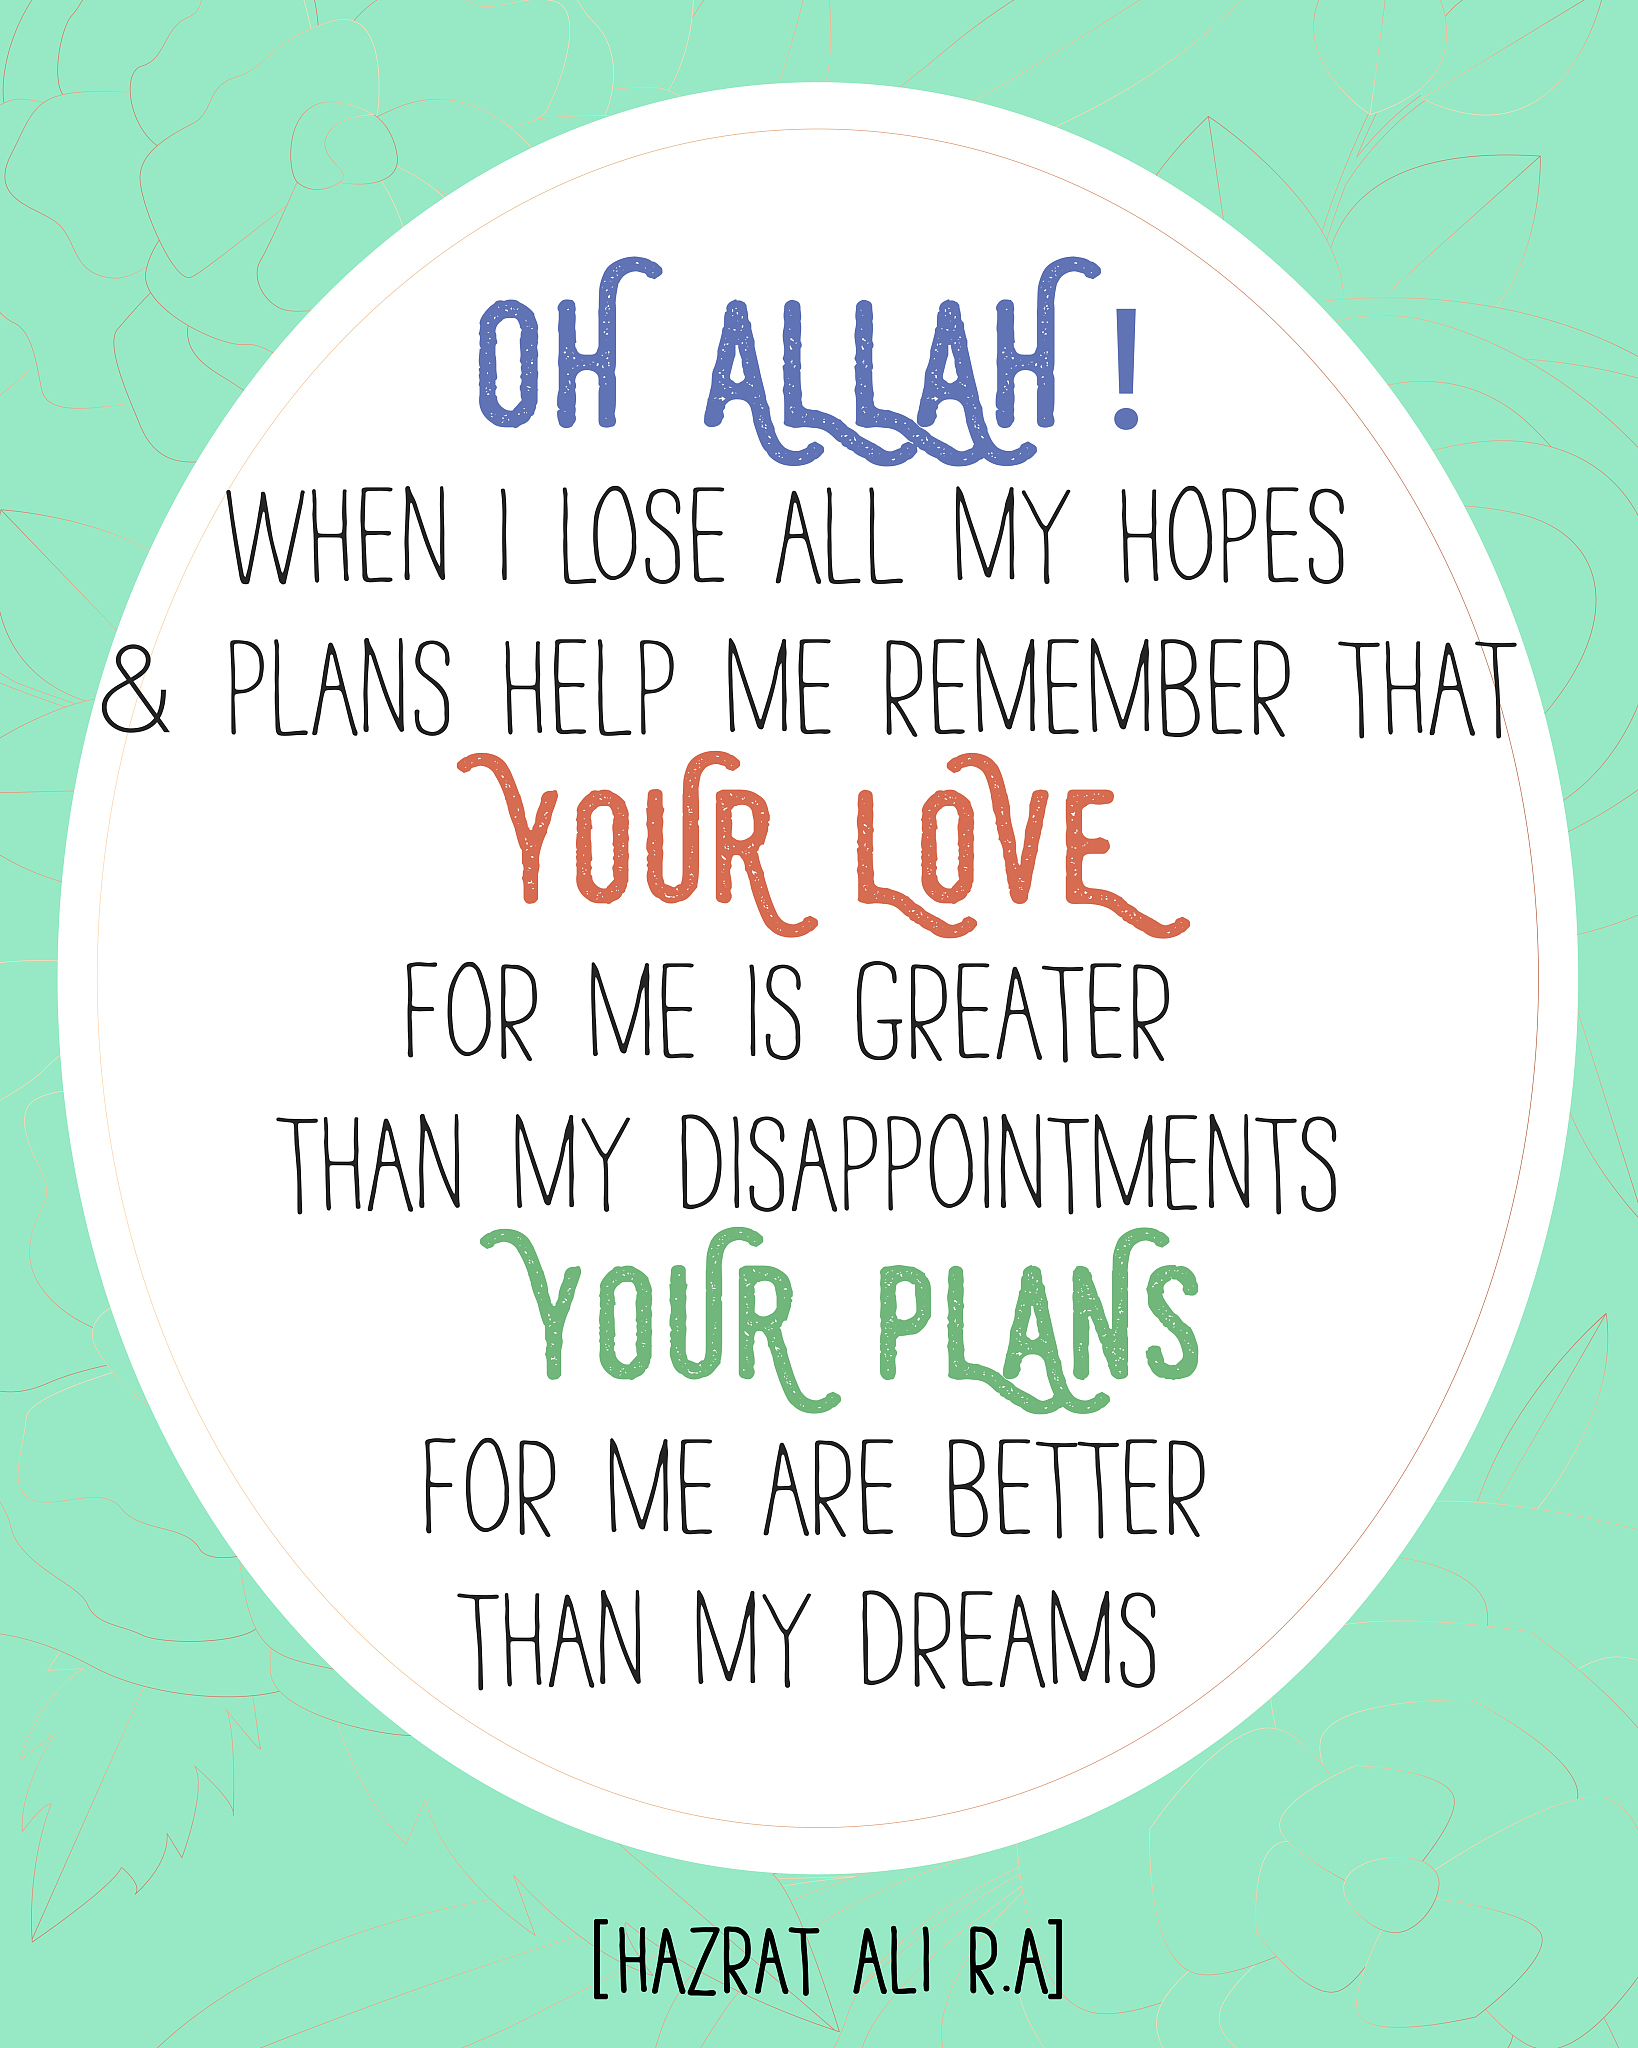 OH ALLAH!
WHEN I LOSE ALL MY HOPES
& PLANS HELP ME REMEMBER THAT
YOUR LOVE
FOR ME IS GREATER
THAN MY DISAPPOINTMENTS
YOUR PLANS
FOR ME ARE BETTER
THAN MY DREAMS
[HAZRAT ALI R.A]